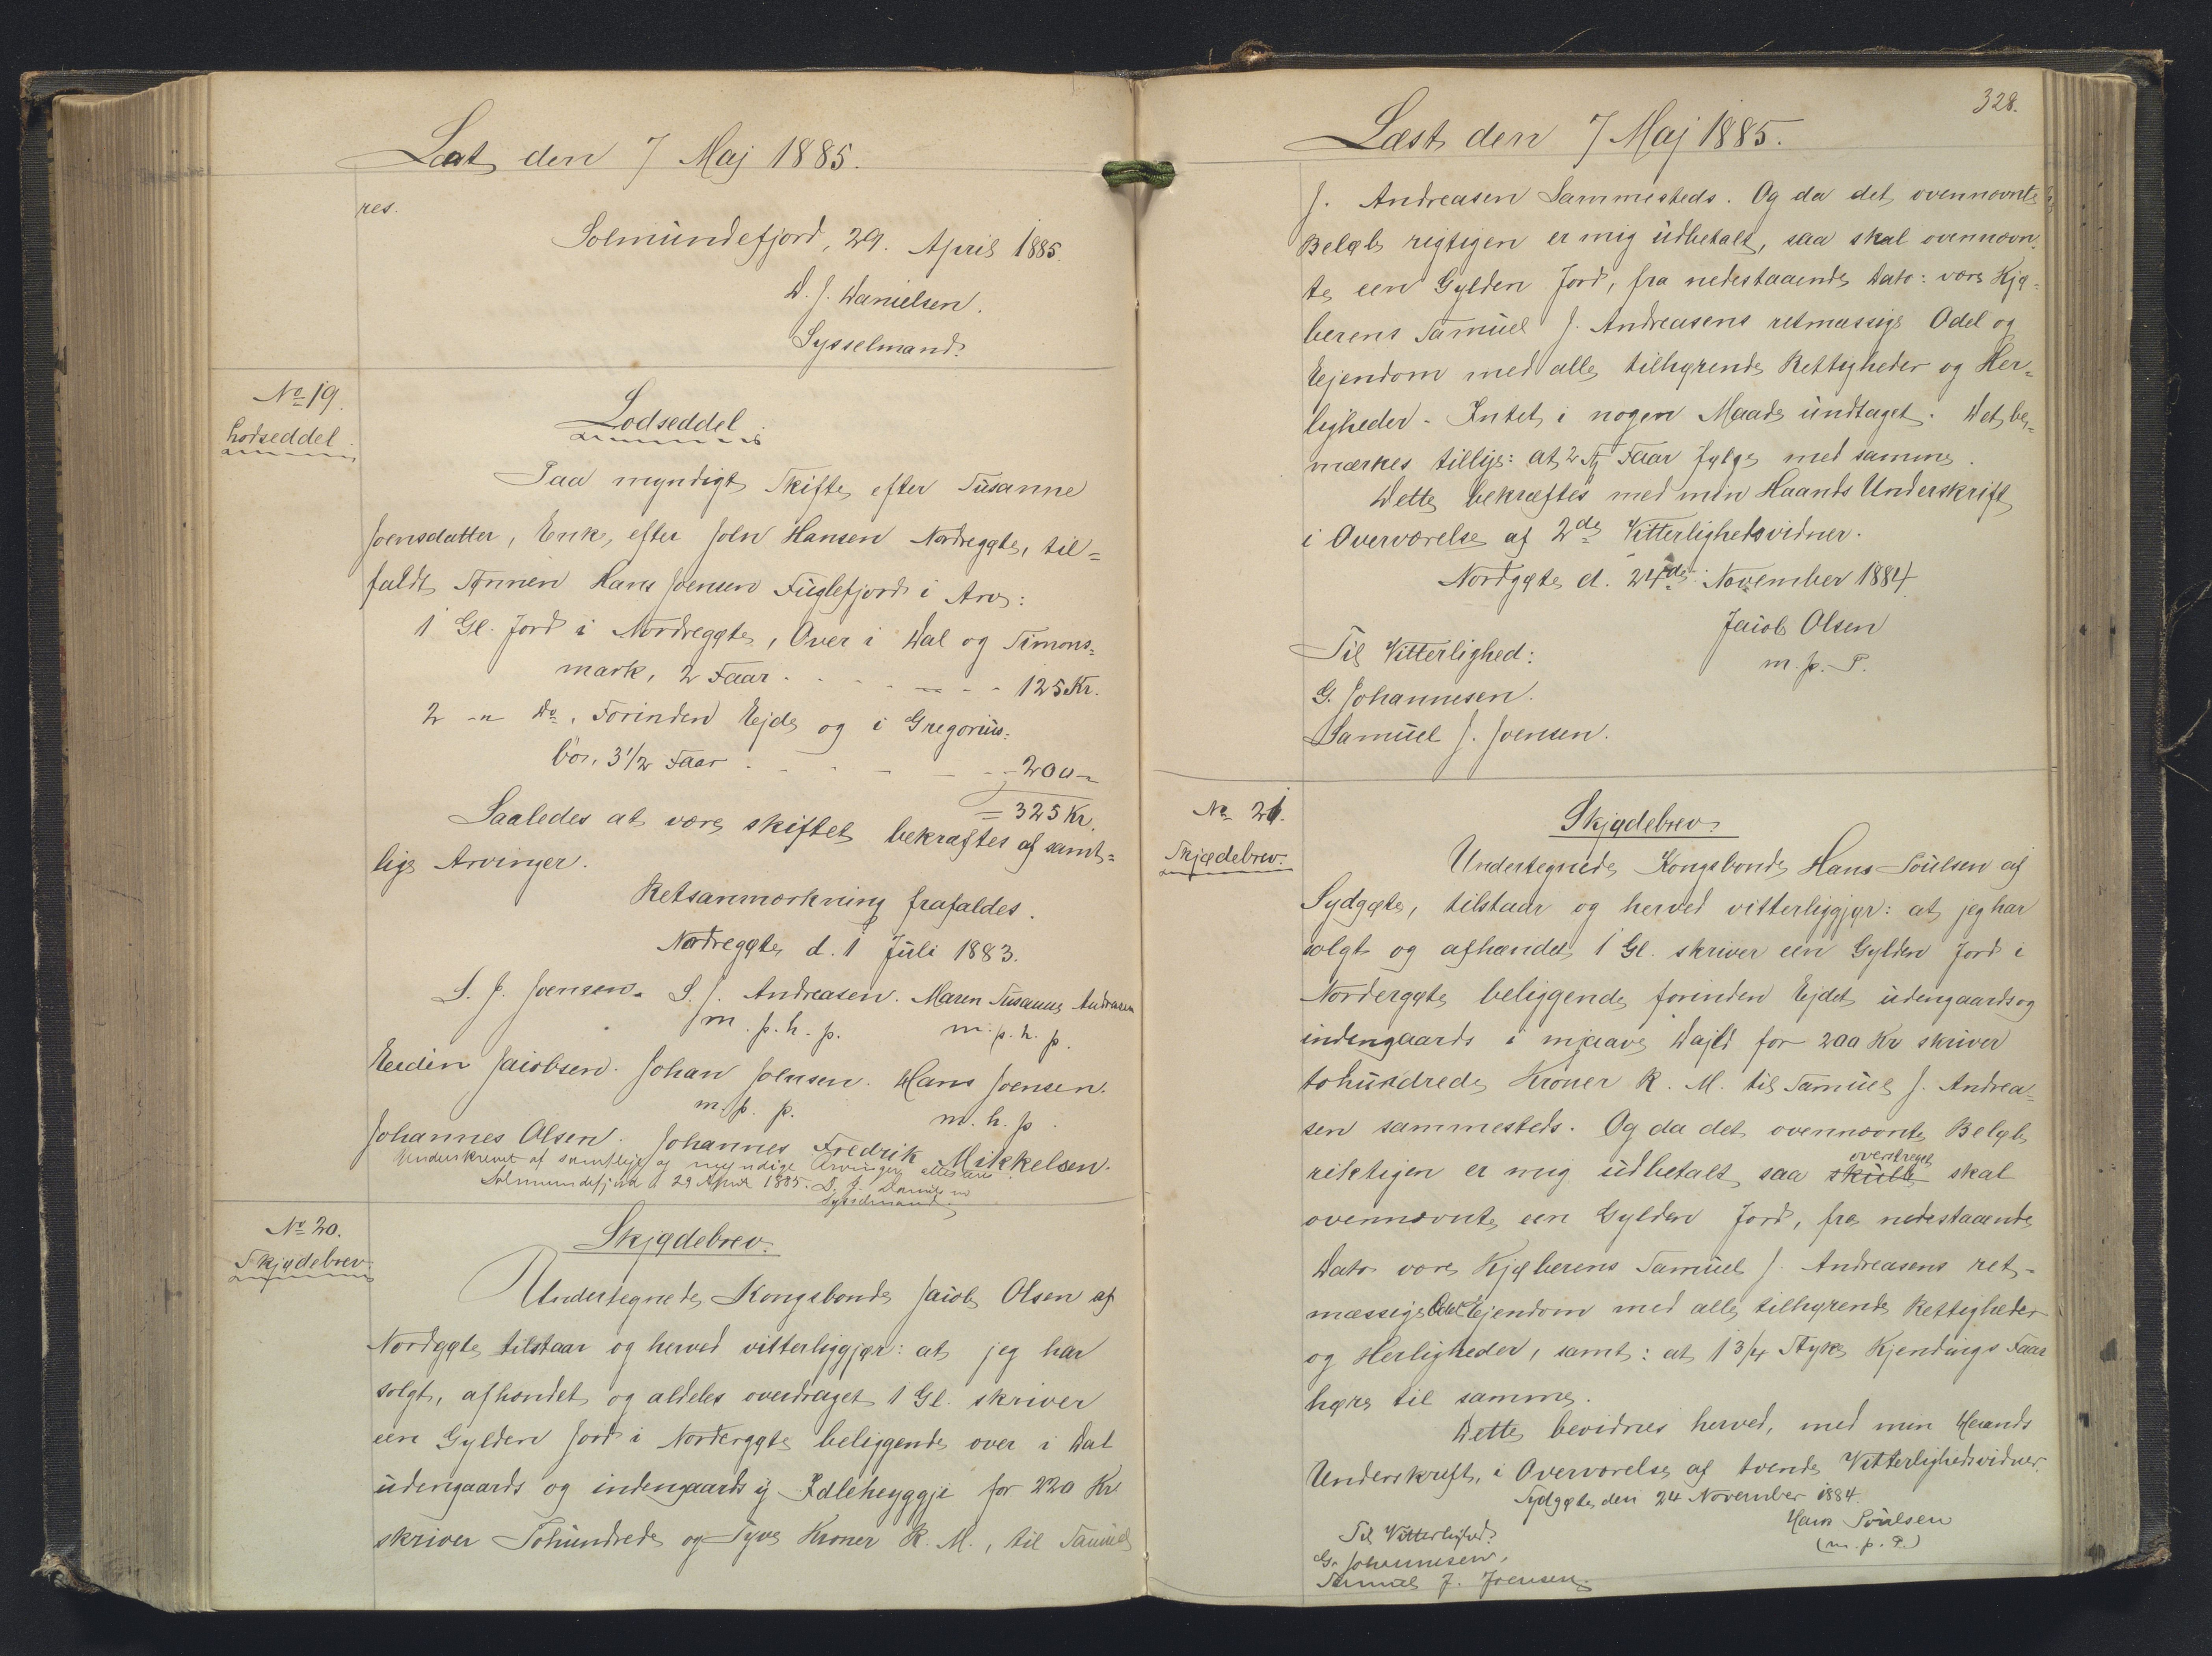 Læst den 7 Maj 1885.
res.
Solmundefjord, 29. April 1885.
D. J. Danielsen.
Sysselmand.
No 19.
Lodseddel.
Lodseddel
Paa myndigt Skifte efter Susanne
Joensdatter, Enke efter Joen Hansen Nordregøte, til=
faldt Sønnen Hans Joensen Fuglefjord i Arv:
1 Gl. Jord i Nordregøte, Over i Dal og Simons=
mark, 2 Faar . . . . . . 125 Kr.
2 - Do, Forinden Ejde og i Gregorius=
bør, 3 1/2 Faar . . . . . . 200 -
= 325 Kr.
Saaledes at være skiftet bekræftes af samt=
lige Arvinger.
Retsanmærkning frafaldes.
Nordregøte d. 1 Juli 1883.
S. J. Joensen. S. J. Andreasen. Maren Susanne Andreasen
m. p. h. p. m. p. h. p.
Heidin Jacobsen. Johan Joensen. Hans Joensen.
m. p. p. m. h. p.
Johannes Olsen. Johannes Fredrik Mikkelsen.
Underskrevet af samtlige og myndige Arvinger attesteres
Solmundefjord 29 April 1885. D. J. Danielsen
Sysselmand.
No 20.
Skjødebrev.
Skjødebrev.
Undertegnede Kongsbonde Jacob Olsen af
Nordgøte tilstaar og herved vitterliggjør: at jeg har
solgt, afhændet og aldeles overdraget 1 Gl. skriver
een Gylden Jord i Nordergøte beliggende over i Dal
udengaards og indengaards y Idleheyggje for 220 Kr.
skriver Tohundrede og Tyve Kroner R. M., til Samuel
328.
Læst den 7 Maj 1885.
J. Andreasen Sammesteds. Og da det ovennævnte
Beløb rigtigen er mig udbetalt, saa skal ovennævn=
te een Gylden Jord, fra nedestaaende Dato: være Kjø=
berens Samuel J. Andreasens retmæssige Odel og
Ejendom med alle tilhørende Rettigheder og Her=
ligheder - Intet i nogen Maade undtaget. Det be=
mærkes tillige: at 2 St Faar følge med samme.
Dette bekræftes med min Haands Underskrift
i Overværelse af 2de Vitterlighedsvidner.
Nordgøte d. 24de November 1884.
Jacob Olsen
m. p. P.
Til Vitterlighed:
G. Johannesen.
Samuel J. Joensen.
No 21.
Skjødebrev.
Skjødebrev
Undertegnede Kongsbonde Hans Poulsen af
Sydgøte, tilstaar og herved vitterliggjør: at jeg har
solgt og afhændet 1 Gl. skriver een Gylden Jord i
Nordergøte beliggende forinden Ejdet udengaards og
indengaards i mjaave Dajld for 200 Kr skriver
tohundrede Kroner R. M. til Samuel J. Andrea=
sen sammesteds. Og da det ovennævnte Beløb
riktigen er mig udbetalt saa skulle overstreget skal
ovennævnte een Gylden Jord, fra nedestaaende
Dato være Kjøberens Samuel J. Andreasens ret=
mæssige Odel Ejendom med alle tilhørende Rettigheder
og Herligheder, samt: at 1 3/4 Styke Kjendings Faar
høre til samme.
Dette bevidnes herved, med min Haands
Underskrift, i Overværelse af tvende Vitterlighedsvidner.
Sydgøte den 24 November 1884.
Hans Poulsen
(m. p. P.)
Til Vitterlighed:
G. Johannesen.
Samuel J. Joensen.